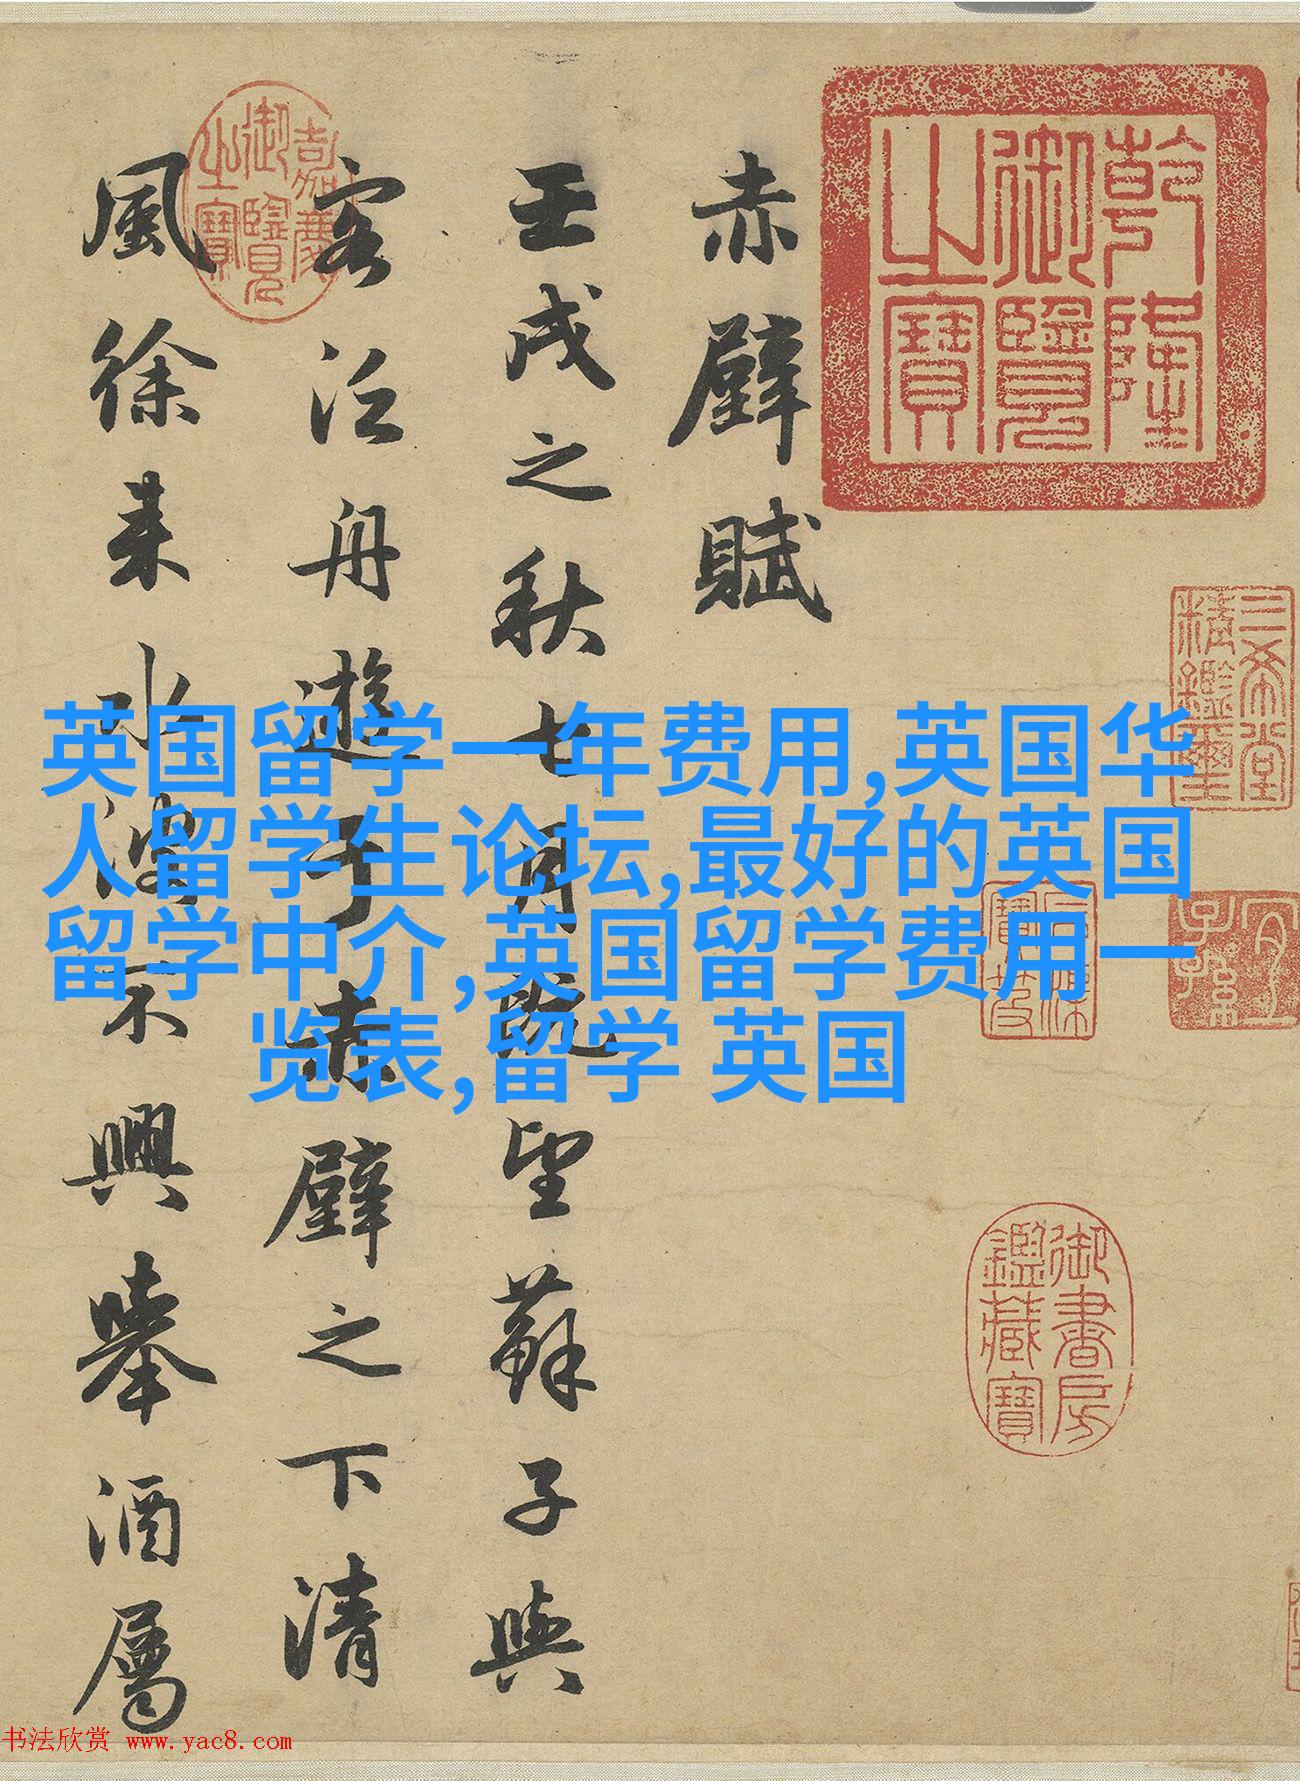 赤壁賦
壬戌之秋七月既望蘇子與
客泛舟遊于赤壁之下清
風徐来水波不興舉酒屬
乾隆御覽之寶
嘉慶御覽之寶
三希堂精鑑璽
宜子孫
御書房鑑藏寶
英国留学一年费用,英国华
人留学生论坛,最好的英国
留学中介,英国留学费用一
览表,留学 英国
书法欣赏 www.yac8.com